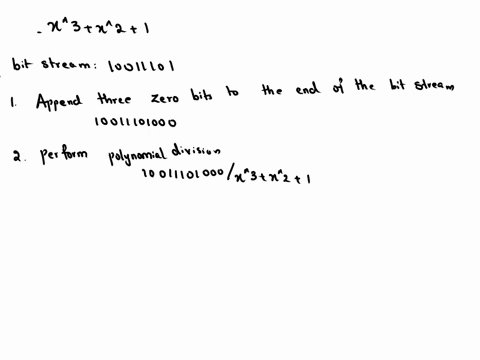 - x^3+x^2+1
bit stream: 10011101
1. Append three zero bits to the end of the bit stream
10011101000
2. perform polynomial division
10011101000/x^3+x^2+1